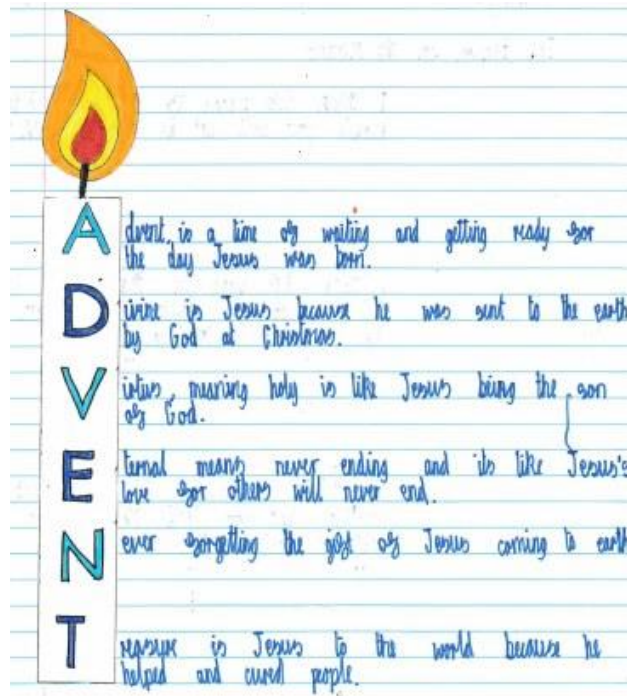 Advent, is a time of waiting and getting ready for
the day Jesus was born.
Divine is Jesus because he was sent to the earth
by God at Christmas.
Virtius, meaning holy is like Jesus being the son
of God.
Eternal means never ending and its like Jesus's
love for others will never end.
Never forgetting the gift of Jesus coming to earth
Treasure is Jesus to the world because he
helped and cured people.